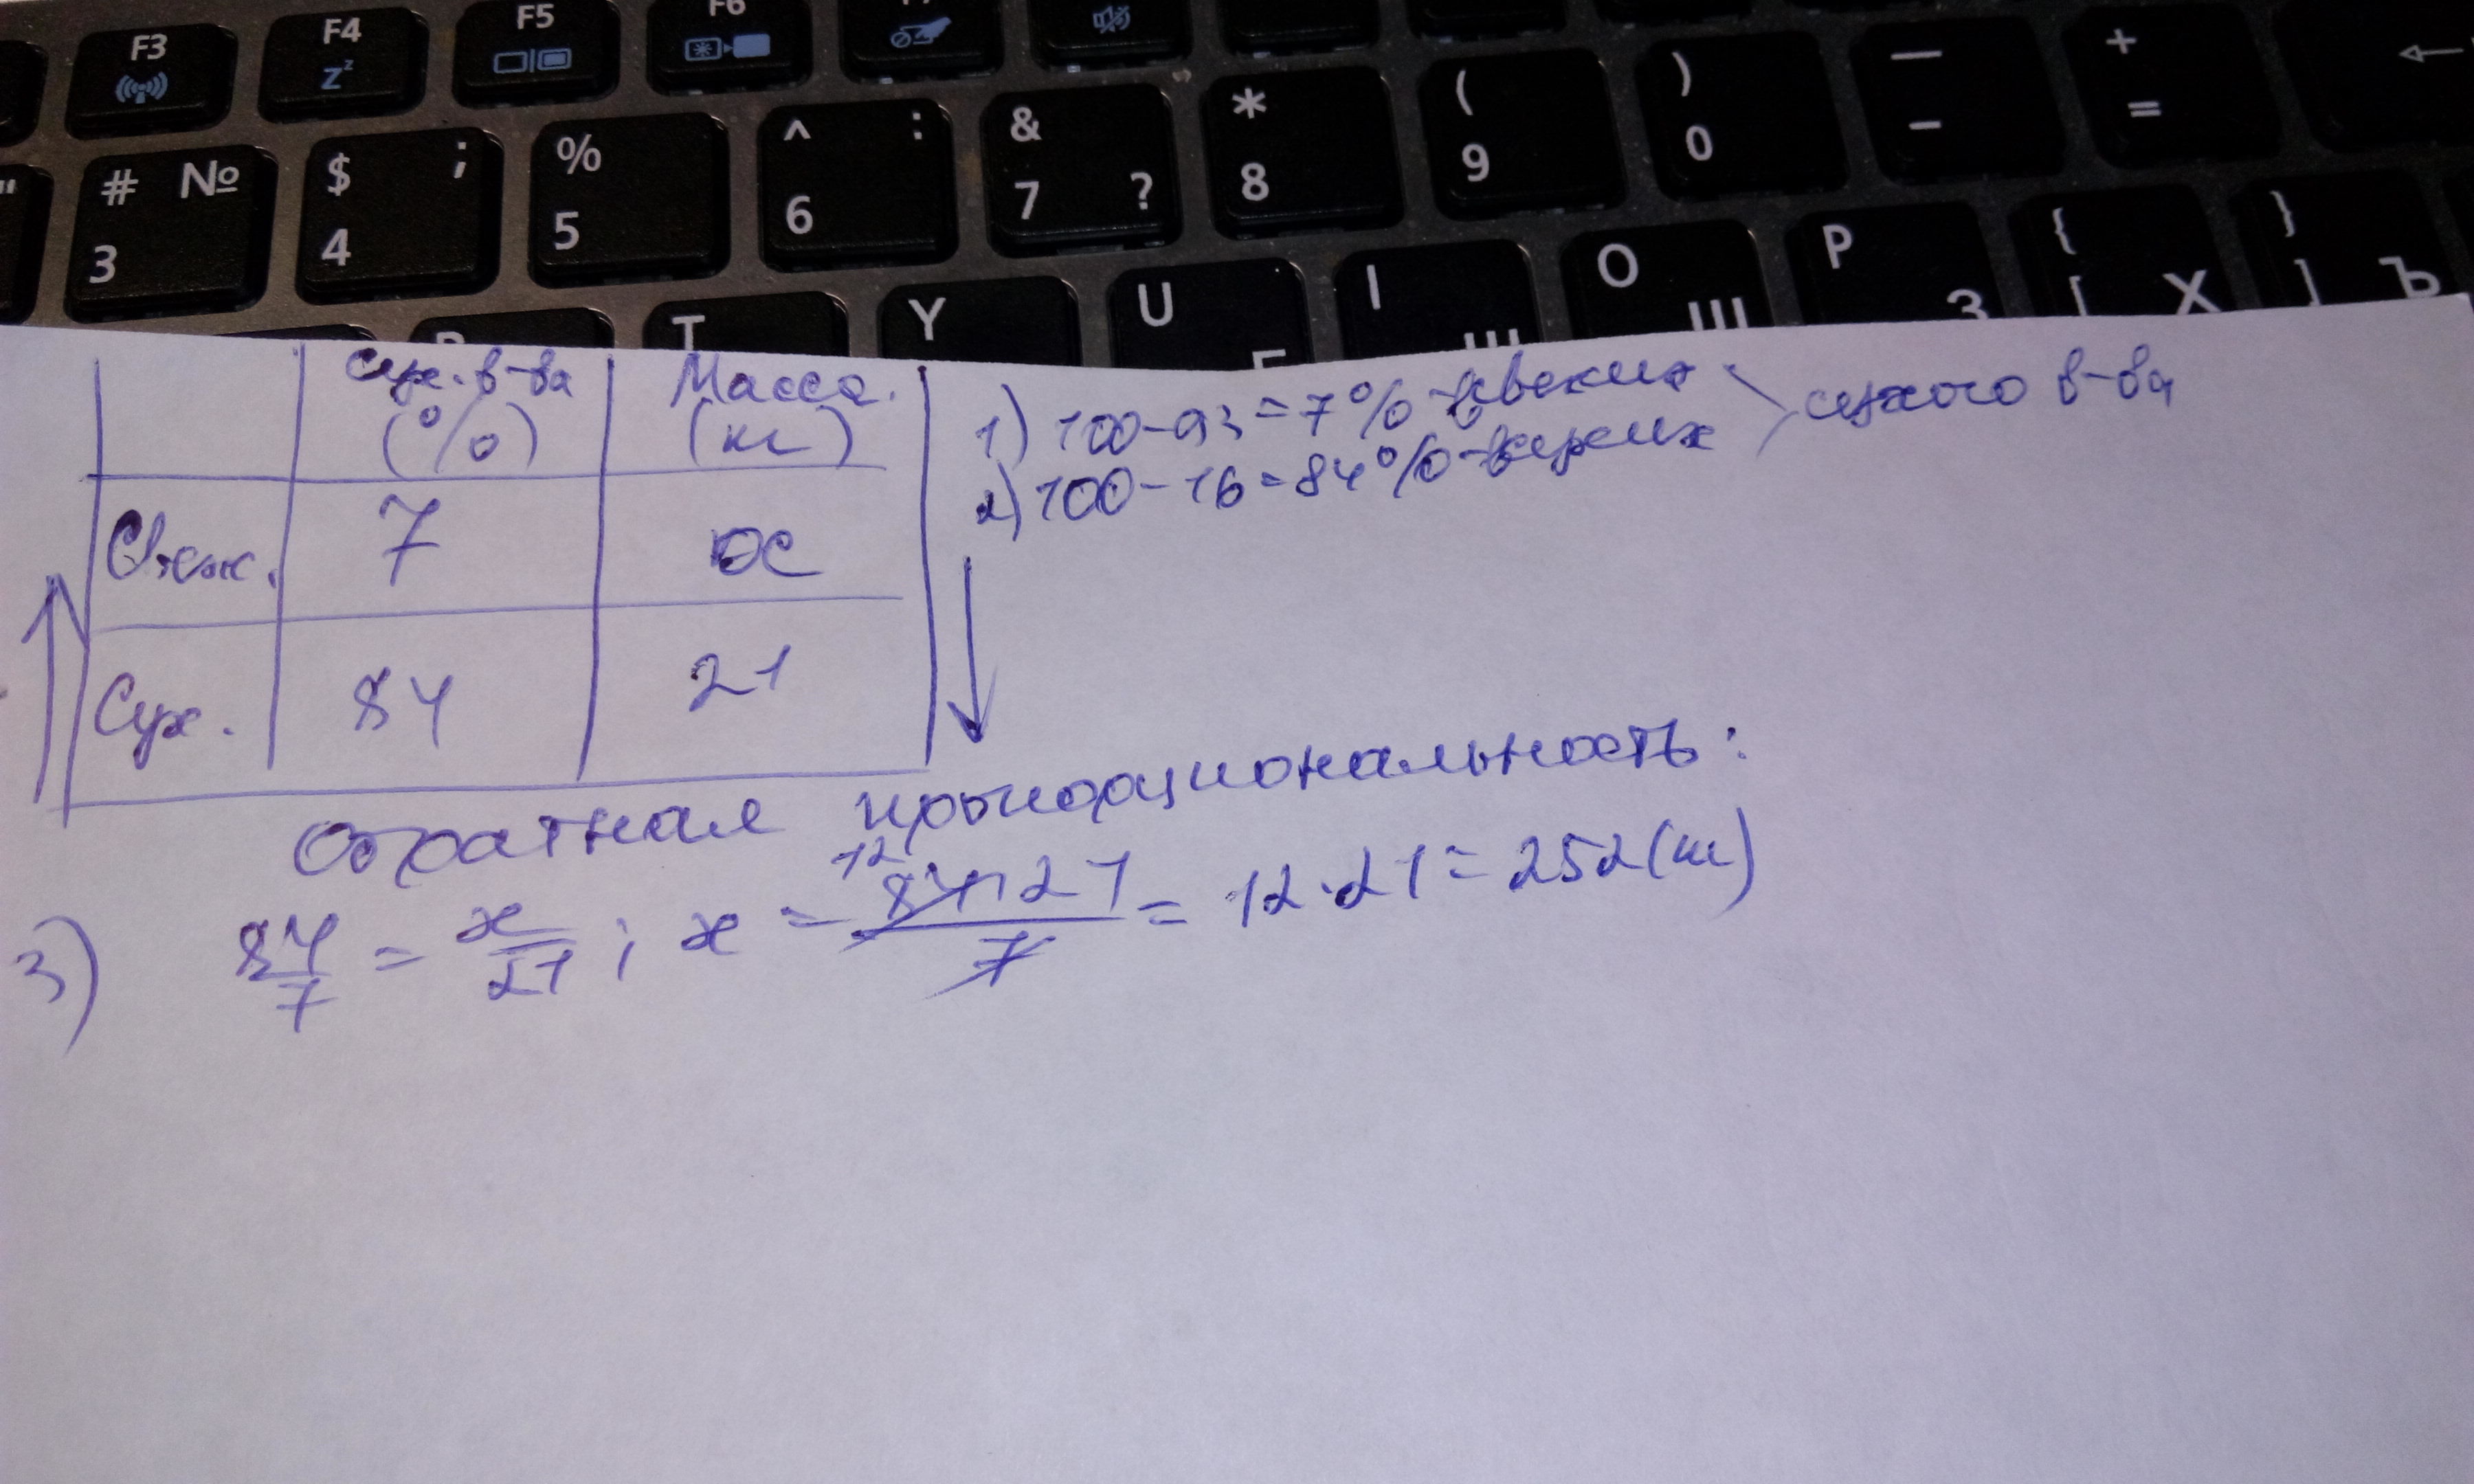 F3 F4 F5 F6
Zz
# № $ ; % ^ : & * ( ) — +
3 4 5 6 7 ? 8 9 0 - =
T Y U I O P { }
Ш Щ З [ Х ] Ъ
Сух. в-ва Масса.
(%) (кг)
Свеж. 7 x
Сух. 84 21
1) 100-93=7% -в свежих
2) 100-16=84% -в сухих
сухого в-ва
Обратная пропорциональность:
3) 84/7 = x/21 ; x = 84·21/7 = 12·21 = 252 (кг)
12